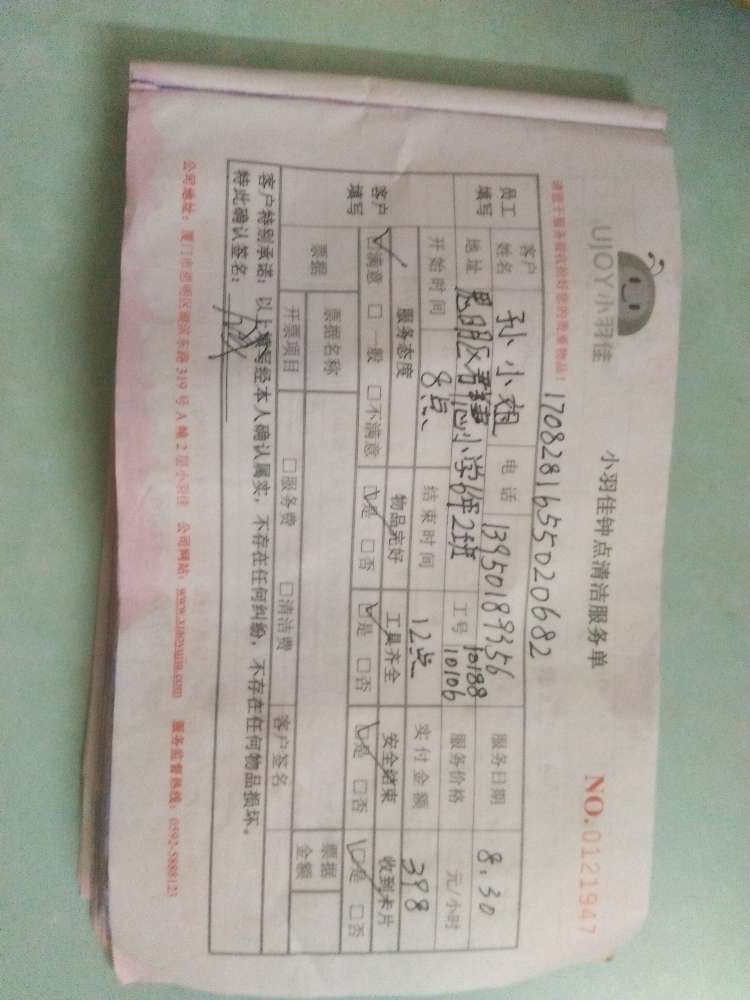 UJOY小羽佳
小羽佳钟点清洁服务单
NO.0121947
请您于服务前收拾好您的贵重物品!
1708281655020682
员工填写
客户姓名 孙小姐 电话 13950189356 服务日期 8.30
地址 思明区 小学6年2班 工号 10188 10106 服务价格 元/小时
开始时间 8点 结束时间 12点 实付金额 398
客户填写
服务态度 物品完好 工具齐全 安全结束 收到卡片
☑满意 □一般 □不满意 ☑是 □否 ☑是 □否 ☑是 □否 ☑是 □否
票据 票据名称 票据金额
开票项目 □服务费 □清洁费 客户签名
客户特别承诺:以上填写经本人确认属实,不存在任何纠纷,不存在任何物品损坏。
特此确认签名:
公司地址:厦门市思明区湖滨东路319号A幢2层小羽佳 公司网站:www.xiaoyujia.com 服务监督热线:0592-5888123